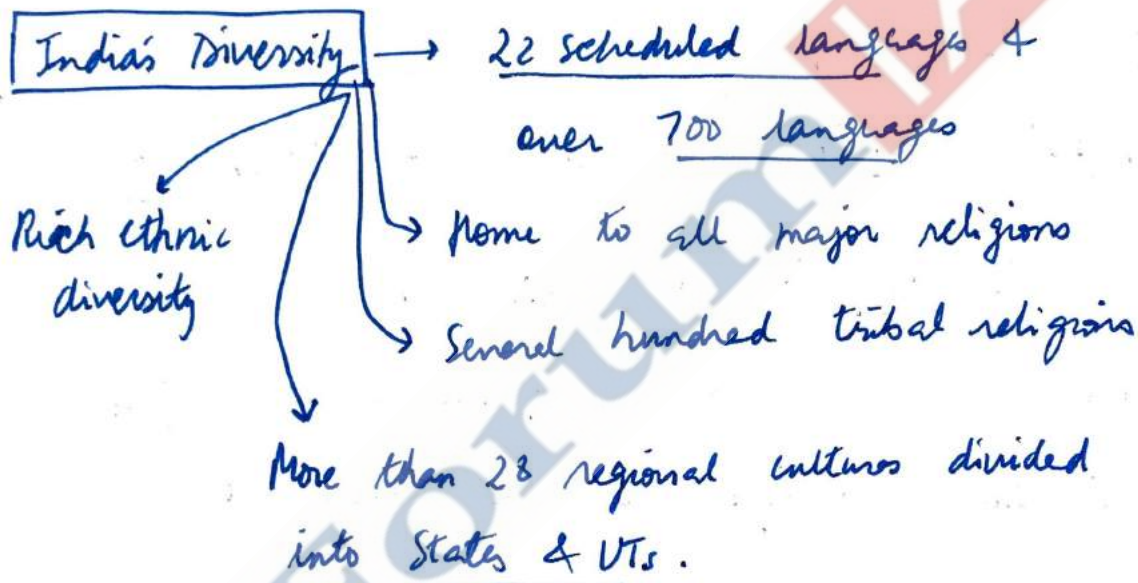 India's Diversity → 22 scheduled languages &
over 700 languages
Rich ethnic
diversity
Home to all major religions
Several hundred tribal religions
More than 28 regional cultures divided
into States & UTs.
Forum